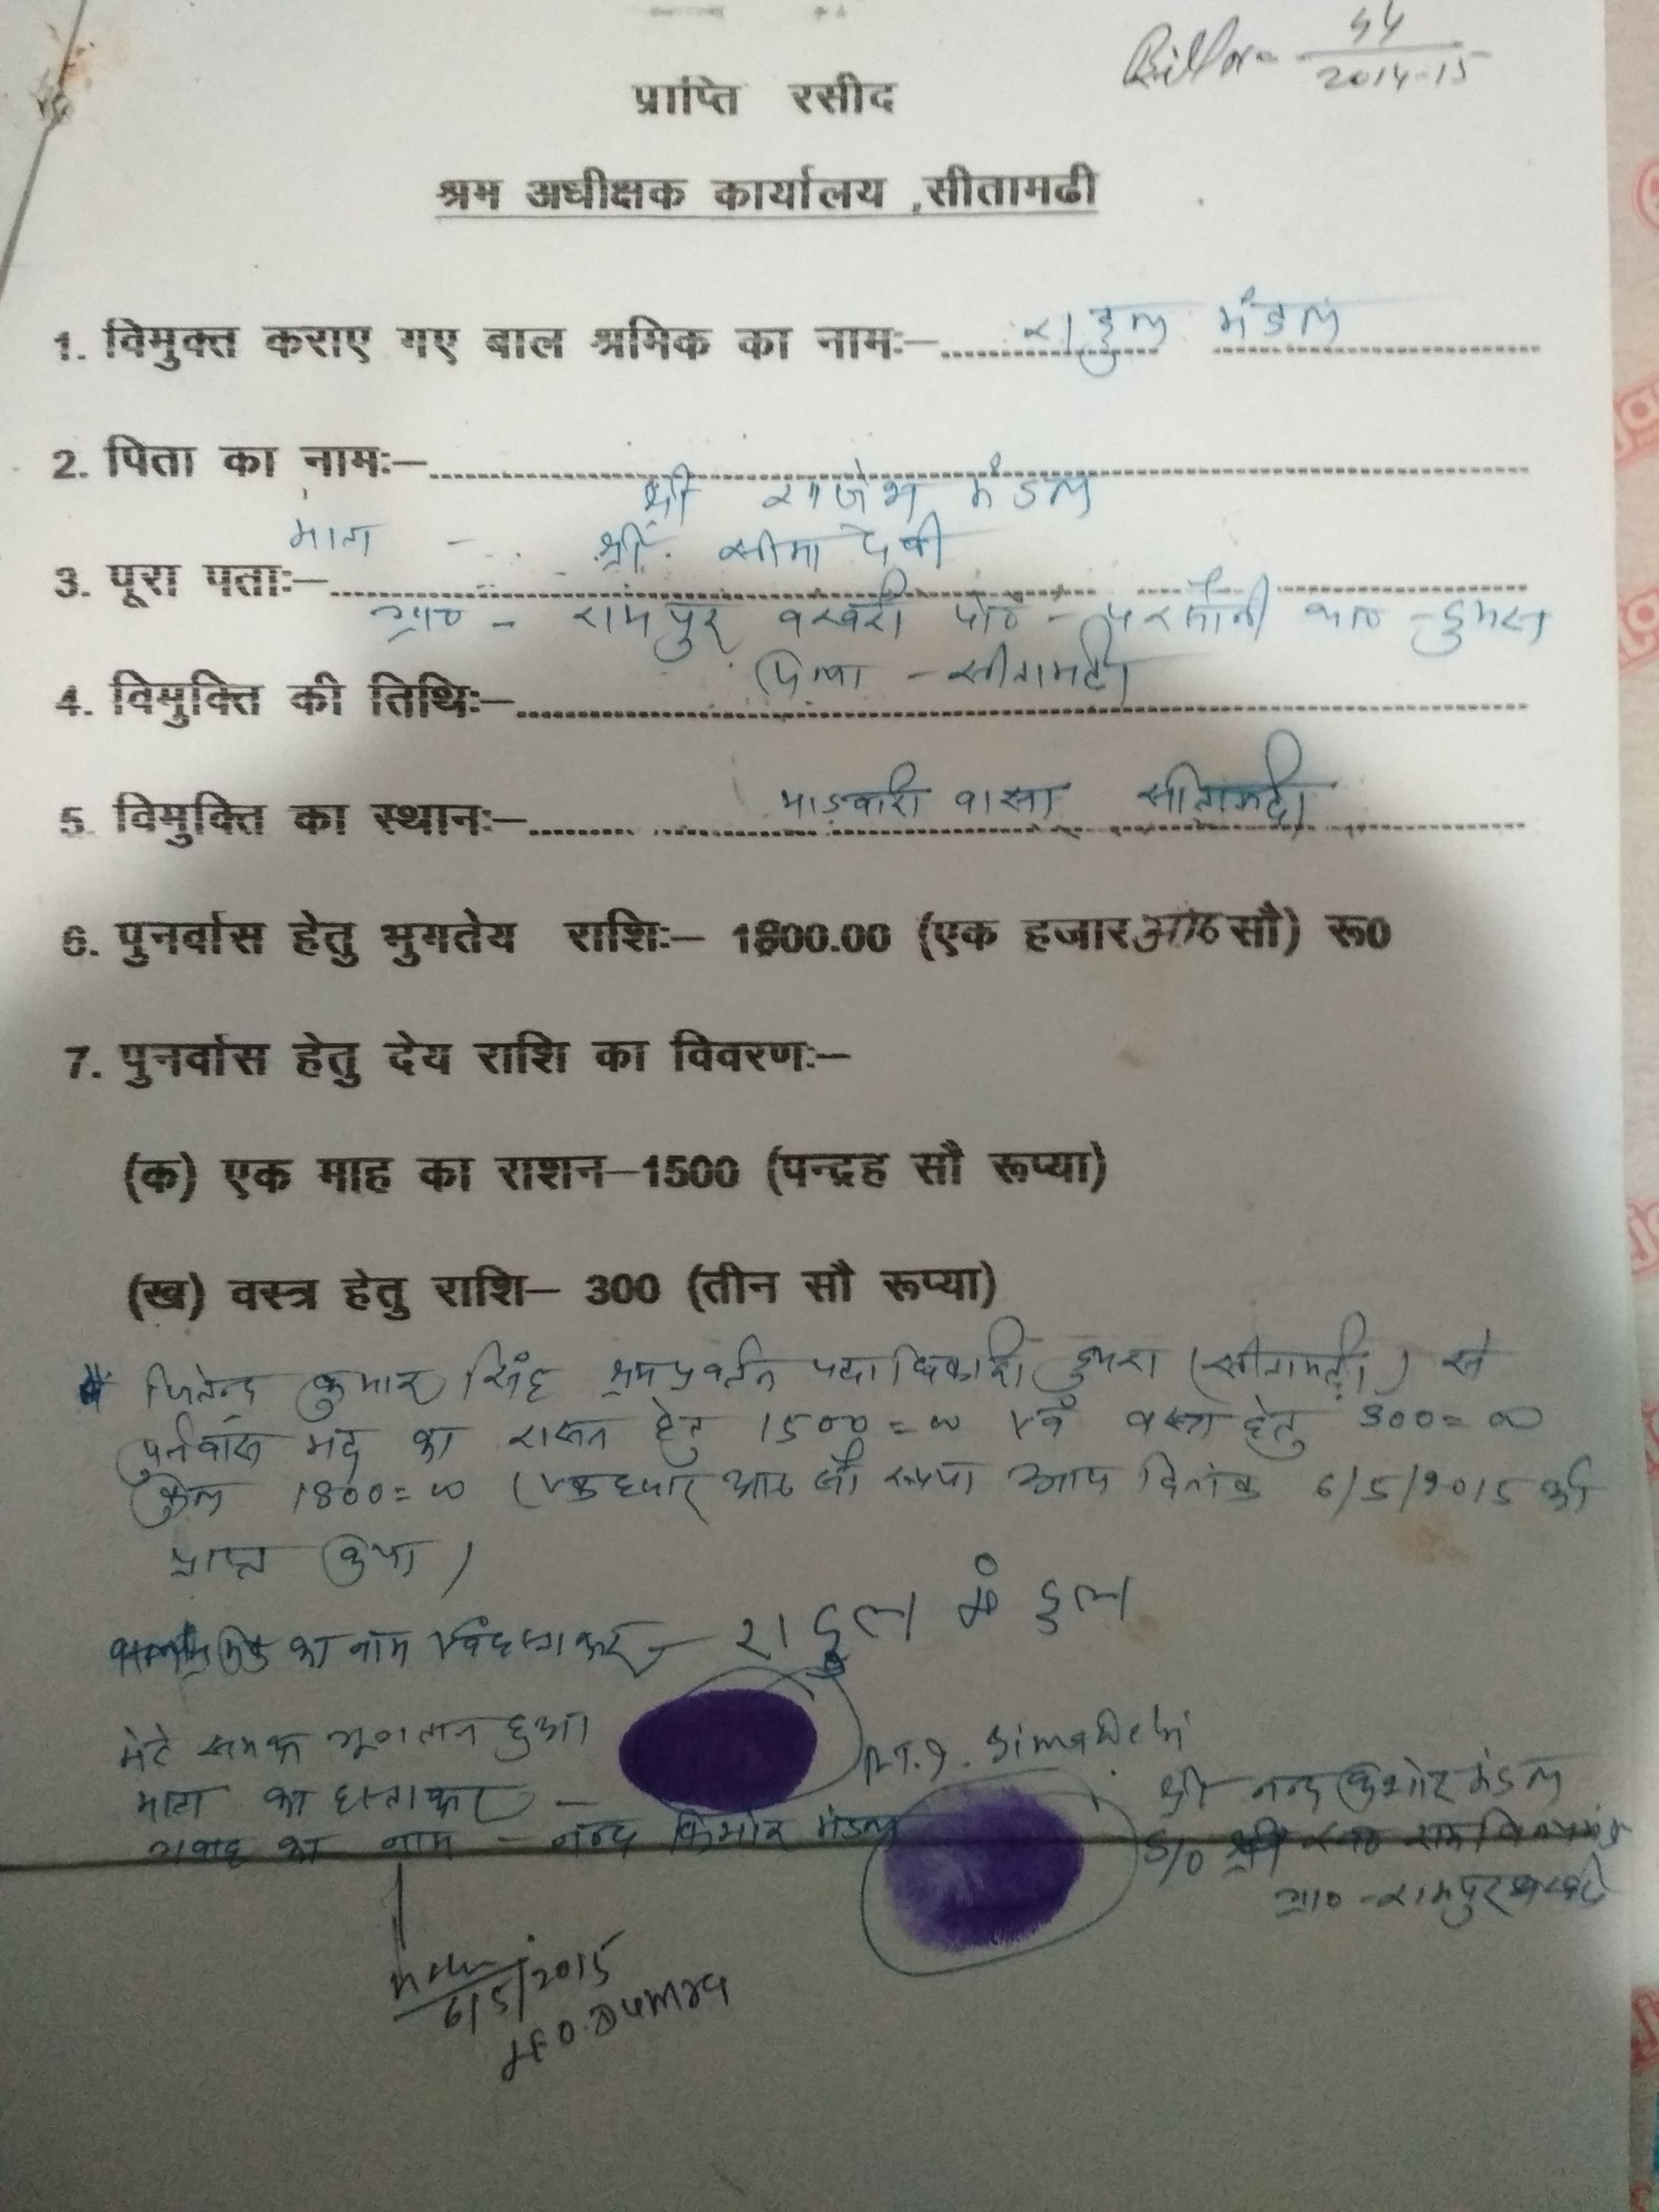 Bill No- 54/2014-15
प्राप्ति रसीद
श्रम अधीक्षक कार्यालय ,सीतामढी
1. विमुक्त कराए गए बाल श्रमिक का नामः– राहुल मंडल
2. पिता का नामः–
श्री राजेश मंडल
माता - श्री सीमा देवी
3. पूरा पताः–
ग्राo - रामपुर बखरी पोo - परसौनी थाo - डुमरा
जिला - सीतामढ़ी
4. विमुक्ति की तिथिः–
5. विमुक्ति का स्थानः– वासा सीतामढ़ी
6. पुनर्वास हेतु भुगतेय राशिः– 1800.00 (एक हजार आठ सौ) रू0
7. पुनर्वास हेतु देय राशि का विवरणः–
(क) एक माह का राशन–1500 (पन्द्रह सौ रूप्या)
(ख) वस्त्र हेतु राशि– 300 (तीन सौ रूप्या)
जितेन्द्र कुमार सिंह श्रम प्रवर्तन पदाधिकारी डुमरा (सीतामढ़ी) से
पुर्नवास मद का राशन हेतु 1500=00 एवं वस्त्र हेतु 300=00
कुल 1800=00 (एक हजार आठ सौ रूपया आज दिनांक 6/5/2015 को
प्राप्त किया।
का नाम एवं हस्ताक्षर - राहुल मंडुल
मेरे समक्ष भूगतान हुआ।
माता का हस्ताक्षर -
L.T.I. Sima Devi
गवाह का नाम - नन्द किशोर मंडल
श्री नन्द किशोर मंडल
S/O श्री राम
ग्राo - रामपुर बखरी
6/5/2015
LEO. Dumra